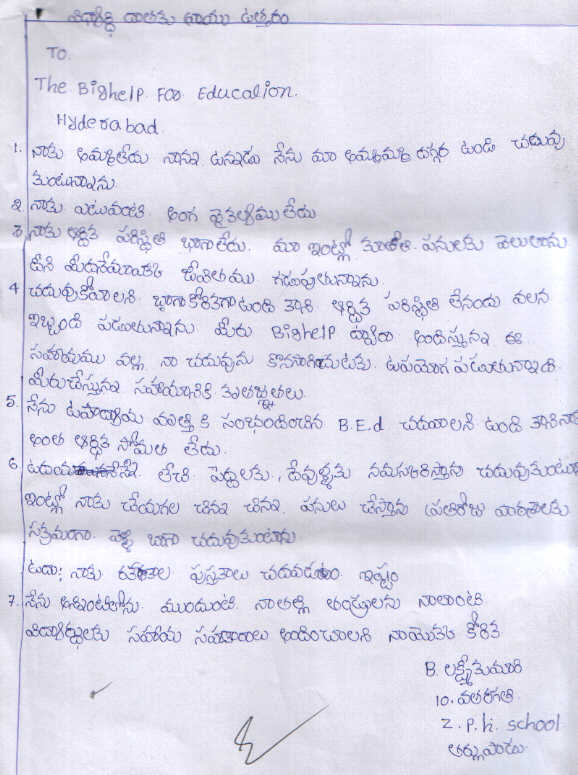 విద్యార్థి దాతకు రాయు ఉత్తరం
To
The Bighelp For Education.
Hyderabad.
1. నాకు అమ్మలేదు నాన్న ఉన్నాడు నేను మా అమ్మమ్మ దగ్గర ఉండి చదువు
కుంటున్నాను
2. నాకు ఎటువంటి అంగ వైకల్యము లేదు
3. నాకు ఆర్థిక పరిస్థితి బాగాలేదు. మా ఇంట్లో పనులకు
జీవితము గడుపుతున్నాను
4 చదువుకోవాలని బాగా కోరికగా ఉంది కాని ఆర్థిక పరిస్థితి లేనందు వలన
ఇబ్బంది పడుతున్నాను. మీరు Bighelp ద్వారా అందిస్తున్న ఈ
సహాయము వల్ల నా చదువును కొనసాగించుటకు ఉపయోగ పడుతున్నాది
మీరుచేస్తున్న సహాయానికి కృతజ్ఞతలు
5. నేను ఉపాధ్యాయ వృత్తి కి సంభందించిన B.Ed చదవాలని ఉంది కాని నాకు
అంత ఆర్థిక స్తోమత లేదు.
6 లేచి పెద్దలకు, దేవుళ్ళకు నమస్కరిస్తాను చదువుకుంటాను
ఇంట్లో నాకు చేయగల చిన్న చిన్న పనులు చేస్తాను ప్రతిరోజు పాఠశాలకు
సక్రమంగా వెళ్ళి బాగా చదువుకుంటాను
ఉదా; నాకు కథల పుస్తకాలు చదవడం ఇష్టం
7. నేను ముందుంటి నాతల్లి తండ్రులను నాలాంటి
విద్యార్థులకు సహాయ సహకారాలు అందించాలని నాయొక్క కోరిక
B. లక్ష్మీకుమారి
10. వతరగతి
Z. P. h. school
తర్లుపాడు